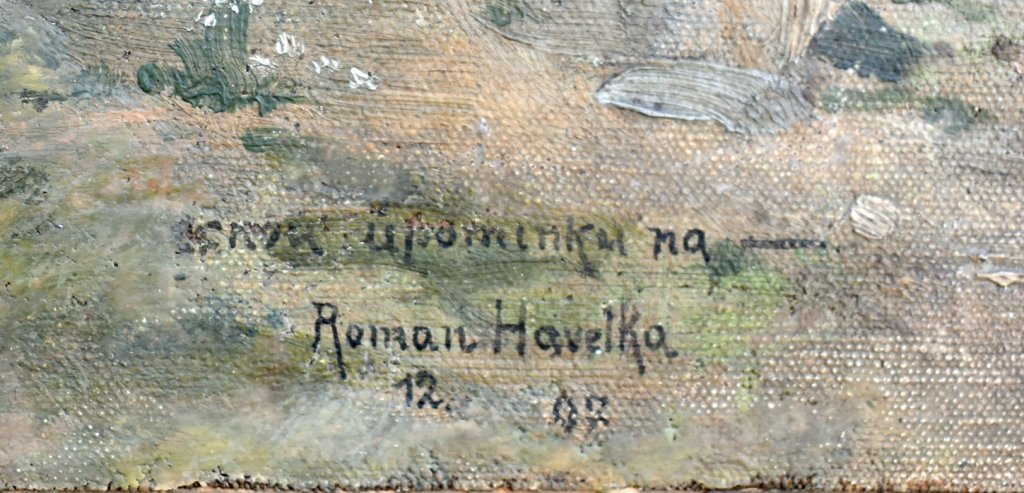 upomínku na
Roman Havelka
12. 07